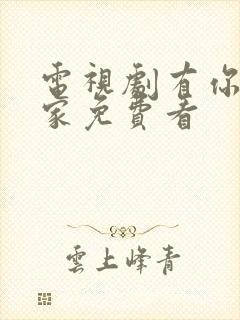 電視劇有你
家免費看
雲上峰青